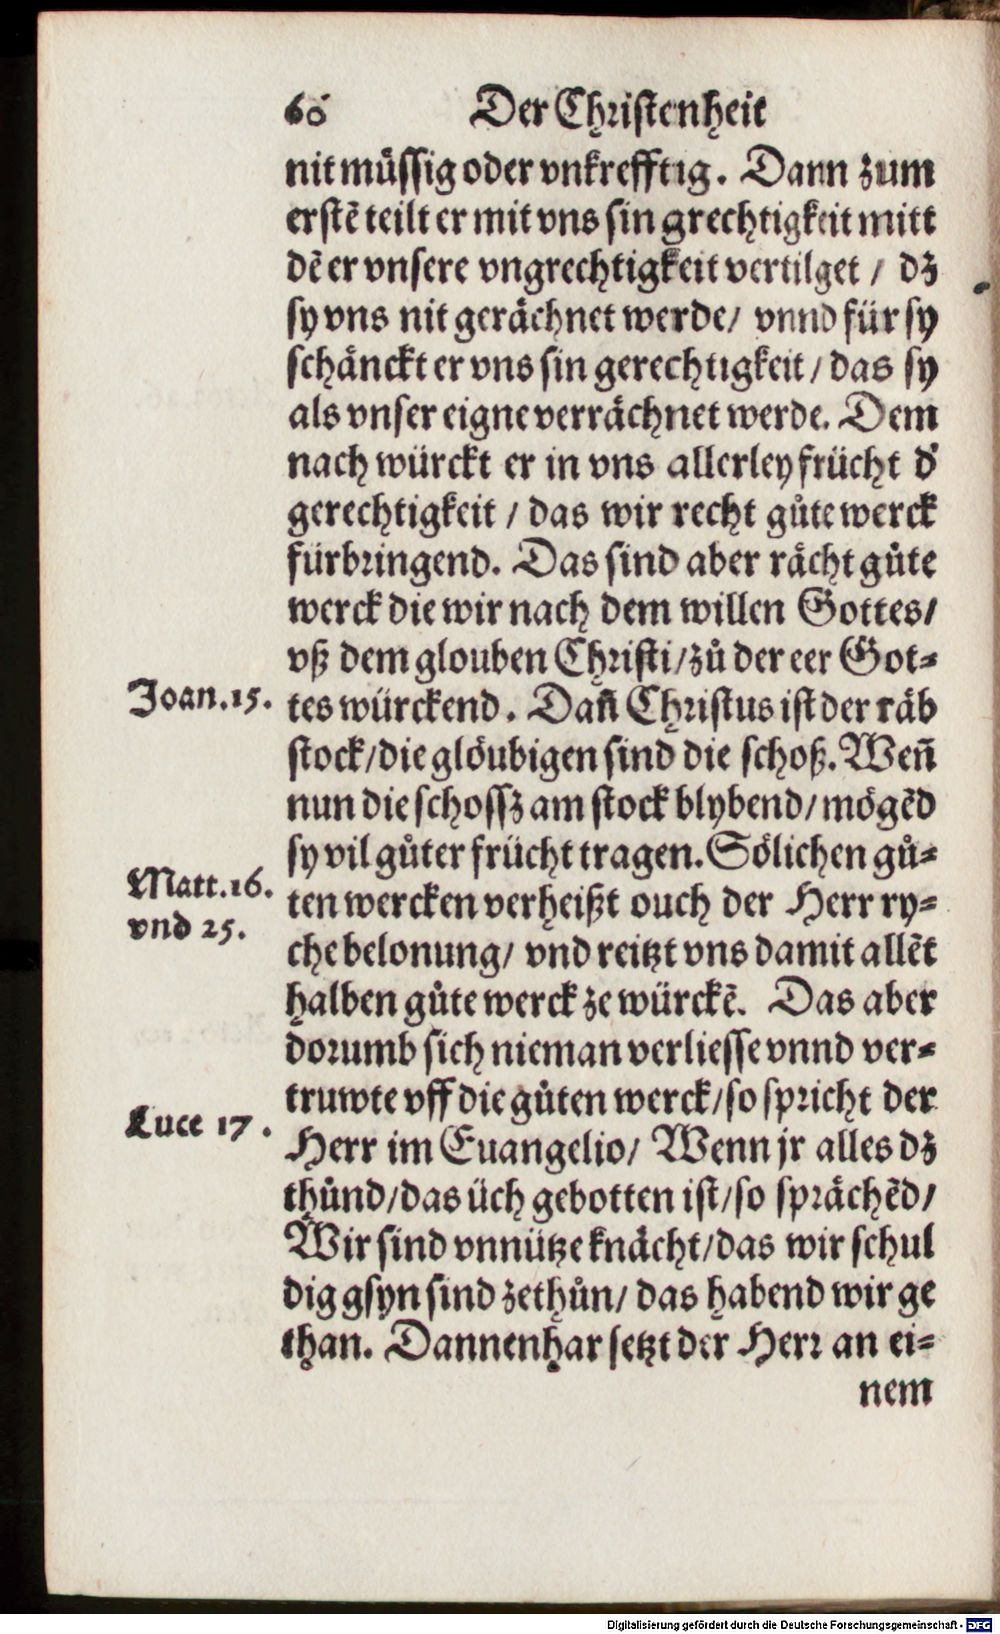 60 Der Christenheit
nit müssig oder vnkrefftig. Dann zum
erstē teilt er mit vns sin grechtigkeit mitt
dē er vnsere vngrechtigkeit vertilget / dz
sy vns nit gerächnet werde / vnnd für sy
schänckt er vns sin gerechtigkeit / das sy
als vnser eigne verrächnet werde. Dem
nach würckt er in vns allerley frücht d'
gerechtigkeit / das wir recht gůte werck
fürbringend. Das sind aber rächt gůte
werck die wir nach dem willen Gottes /
vß dem glouben Christi / zů der eer Got-
Joan. 15. tes würckend. Dañ Christus ist der räb
stock / die glöubigen sind die schoß. Weñ
nun die schossz am stock blybend / mögēd
sy vil gůter frücht tragen. Sölichen gů-
Matt. 16. ten wercken verheißt ouch der Herr ry-
vnd 25. che belonung / vnd reitzt vns damit allēt
halben gůte werck ze würckē. Das aber
dorumb sich nieman verliesse vnnd ver-
truwte vff die gůten werck / so spricht der
Luce 17. Herr im Euangelio / Wenn jr alles dz
thůnd / das üch gebotten ist / so sprächēd /
Wir sind vnnütze knächt / das wir schul
dig gsyn sind zethůn / das habend wir ge
than. Dannenhar setzt der Herr an ei-
nem
Digitalisierung gefördert durch die Deutsche Forschungsgemeinschaft - DFG